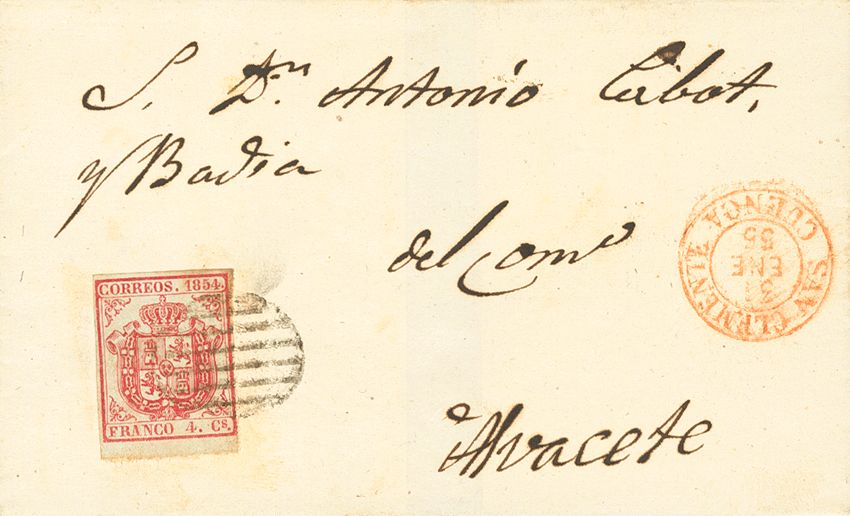 S. Dn. Antonio Cabot,
y Badia
del Comº
Alvacete
CORREOS. 1854.
FRANCO 4. Cs.
SAN CLEMENTE
CUENCA
ENE
55